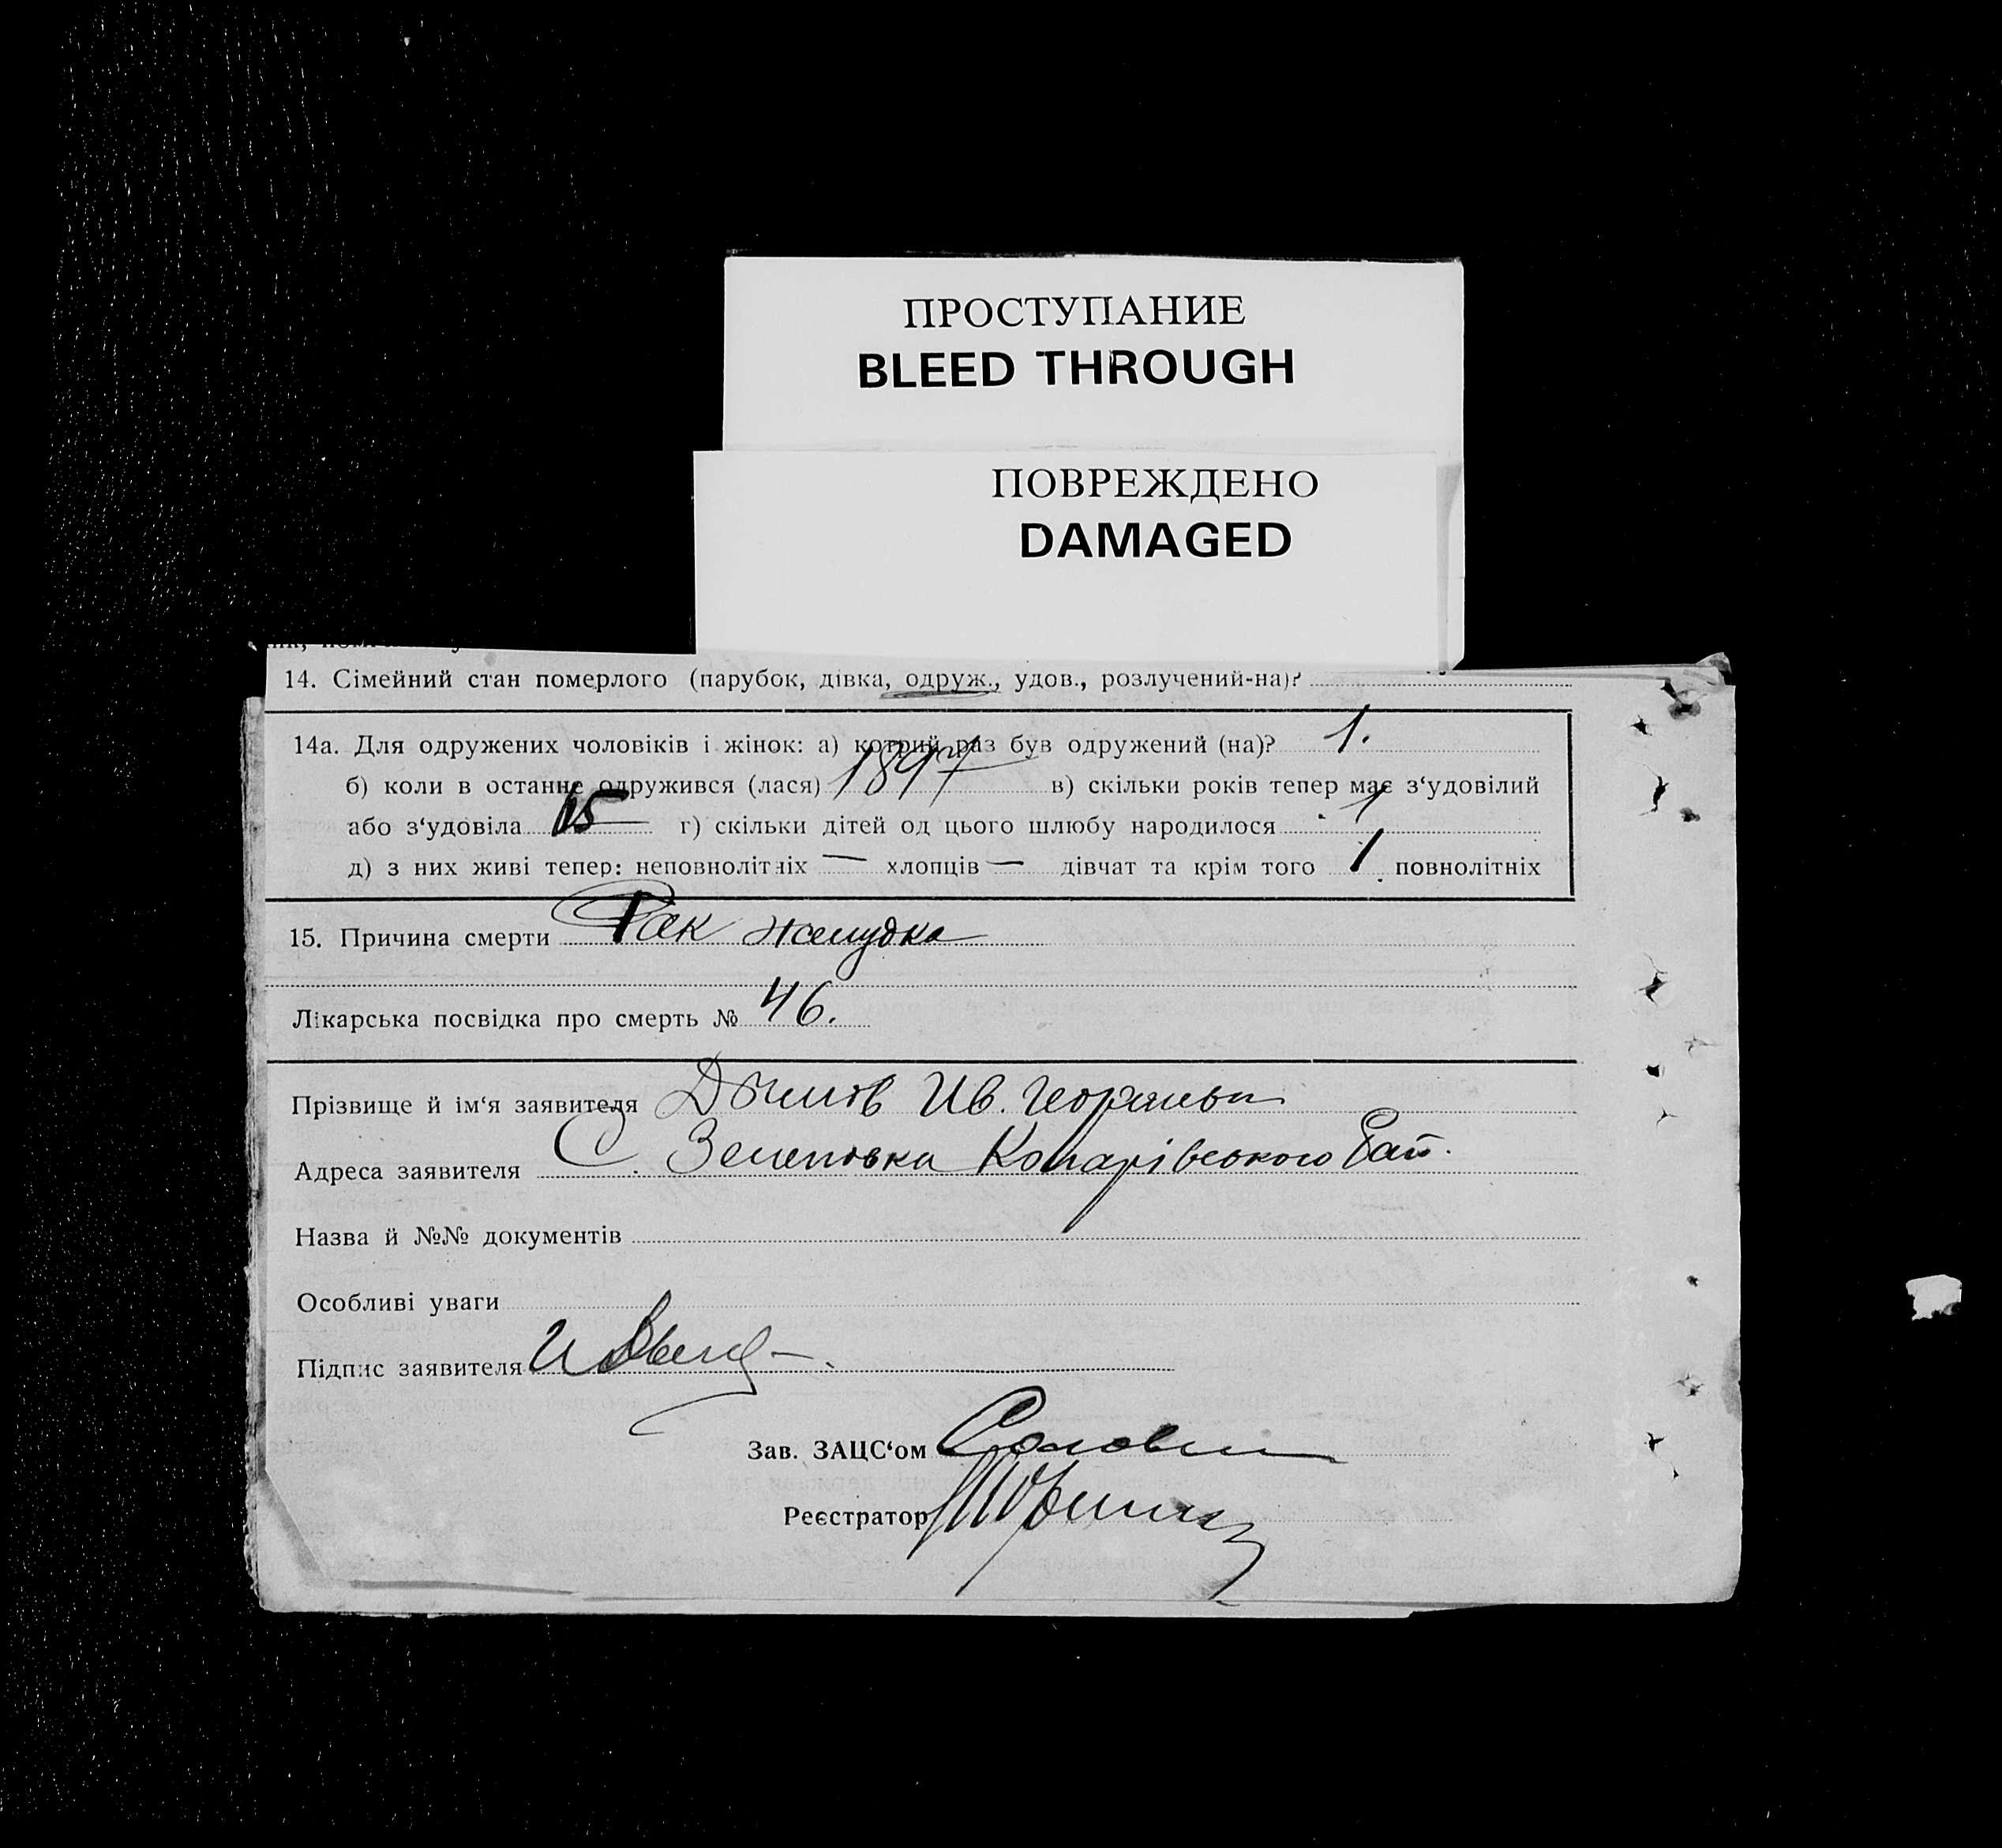 ПРОСТУПАНИЕ
BLEED THROUGH
ПОВРЕЖДЕНО
DAMAGED
14. Сімейний стан померлого (парубок, дівка, одруж., удов., розлучений-на)?
14а. Для одружених чоловіків і жінок: а) котрий раз був одружений (на)? 1.
б) коли в останнє одружився (лася) 1897 в) скільки років тепер має з‘удовілий
або з‘удовіла г) скільки дітей од цього шлюбу народилося 1
д) з них живі тепер: неповнолітніх — хлопців — дівчат та крім того 1 повнолітніх
15. Причина смерти Рак желудка
Лікарська посвідка про смерть № 46.
Прізвище й ім‘я заявителя Ив.
Адреса заявителя С. Рай.
Назва й №№ документів
Особливі уваги
Підпис заявителя
Зав. ЗАЦС‘ом
Реєстратор